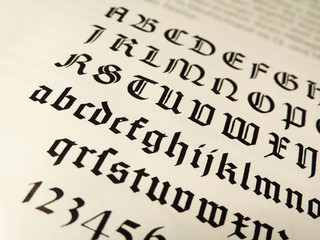 ABCDEFGH
JKLMNOP
RSTUVWXY
abcdefghijklmno
qrſstuvwxyz
123456